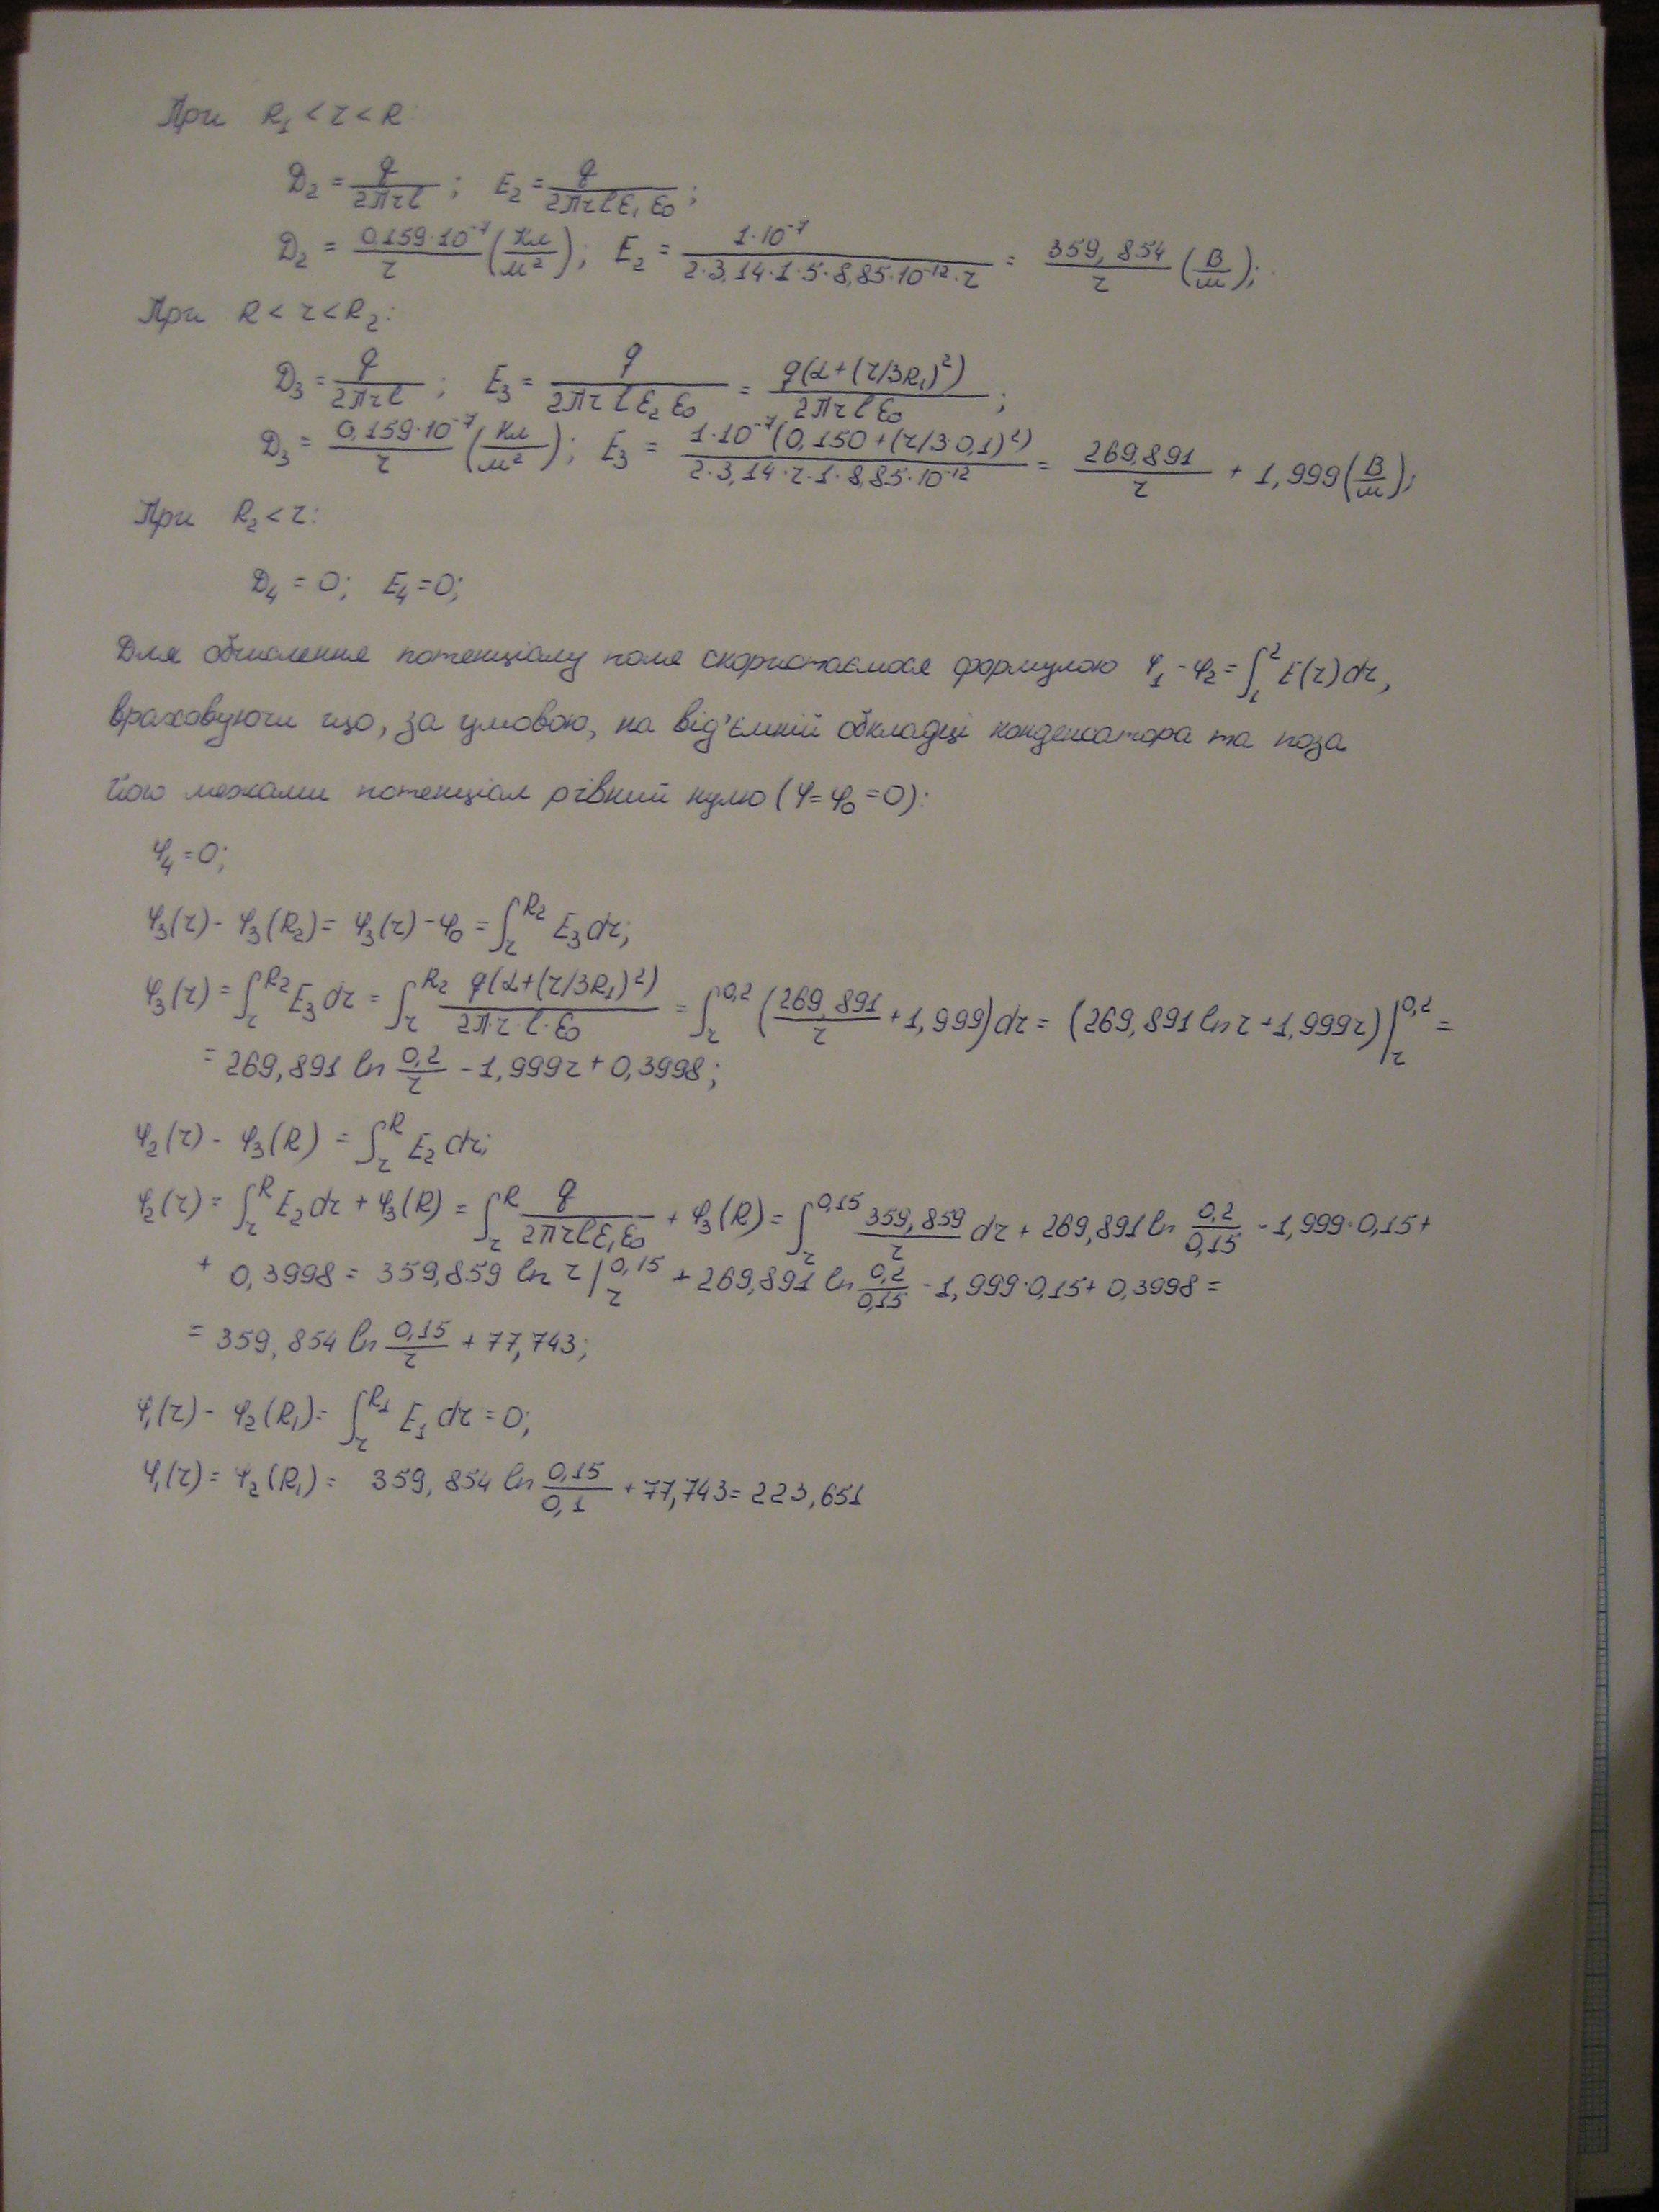 При R₁ < r < R:
D₂ = q/(2πrl); E₂ = q/(2πrlε₁ε₀);
D₂ = 0,159·10⁻⁷/r (Кл/м²); E₂ = 1·10⁻⁷/(2·3,14·1·5·8,85·10⁻¹²·r) = 359,854/r (В/м);
При R < r < R₂:
D₃ = q/(2πrl); E₃ = q/(2πrlε₂ε₀) = q(α+(r/3R₁)²)/(2πrlε₀);
D₃ = 0,159·10⁻⁷/r (Кл/м²); E₃ = 1·10⁻⁷(0,150+(r/3·0,1)²)/(2·3,14·r·1·8,85·10⁻¹²) = 269,891/r + 1,999 (В/м);
При R₂ < r:
D₄ = 0; E₄ = 0;
Для обчислення потенціалу поля скористаємося формулою φ₁ - φ₂ = ∫₁² E(r)dr,
враховуючи що, за умовою, на від'ємній обкладці конденсатора та поза
його межами потенціал рівний нулю (φ = φ₀ = 0):
φ₄ = 0;
φ₃(r) - φ₃(R₂) = φ₃(r) - φ₀ = ∫_r^R₂ E₃dr;
φ₃(r) = ∫_r^R₂ E₃dr = ∫_r^R₂ q(α+(r/3R₁)²)/(2π·r·l·ε₀) = ∫_r^0,2 (269,891/r + 1,999)dr = (269,891 ln r + 1,999r)|_r^0,2 =
= 269,891 ln 0,2/r - 1,999r + 0,3998;
φ₂(r) - φ₃(R) = ∫_r^R E₂dr;
φ₂(r) = ∫_r^R E₂dr + φ₃(R) = ∫_r^R q/(2πrlε₁ε₀) + φ₃(R) = ∫_r^0,15 359,859/r dr + 269,891 ln 0,2/0,15 - 1,999·0,15 +
+ 0,3998 = 359,859 ln r|_r^0,15 + 269,891 ln 0,2/0,15 - 1,999·0,15 + 0,3998 =
= 359,854 ln 0,15/r + 77,743;
φ₁(r) - φ₂(R₁) = ∫_r^R₁ E₁dr = 0;
φ₁(r) = φ₂(R₁) = 359,854 ln 0,15/0,1 + 77,743 = 223,651